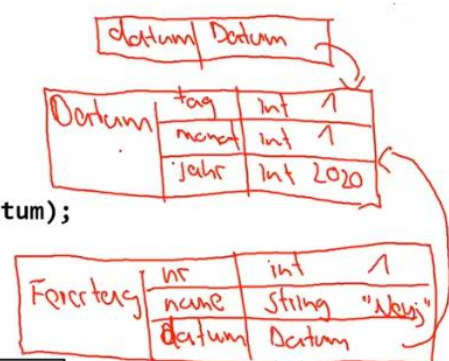 datum Datum
Datum tag int 1
monat int 1
jahr int 2020
tum);
Feiertag nr int 1
name String "Neuj"
datum Datum